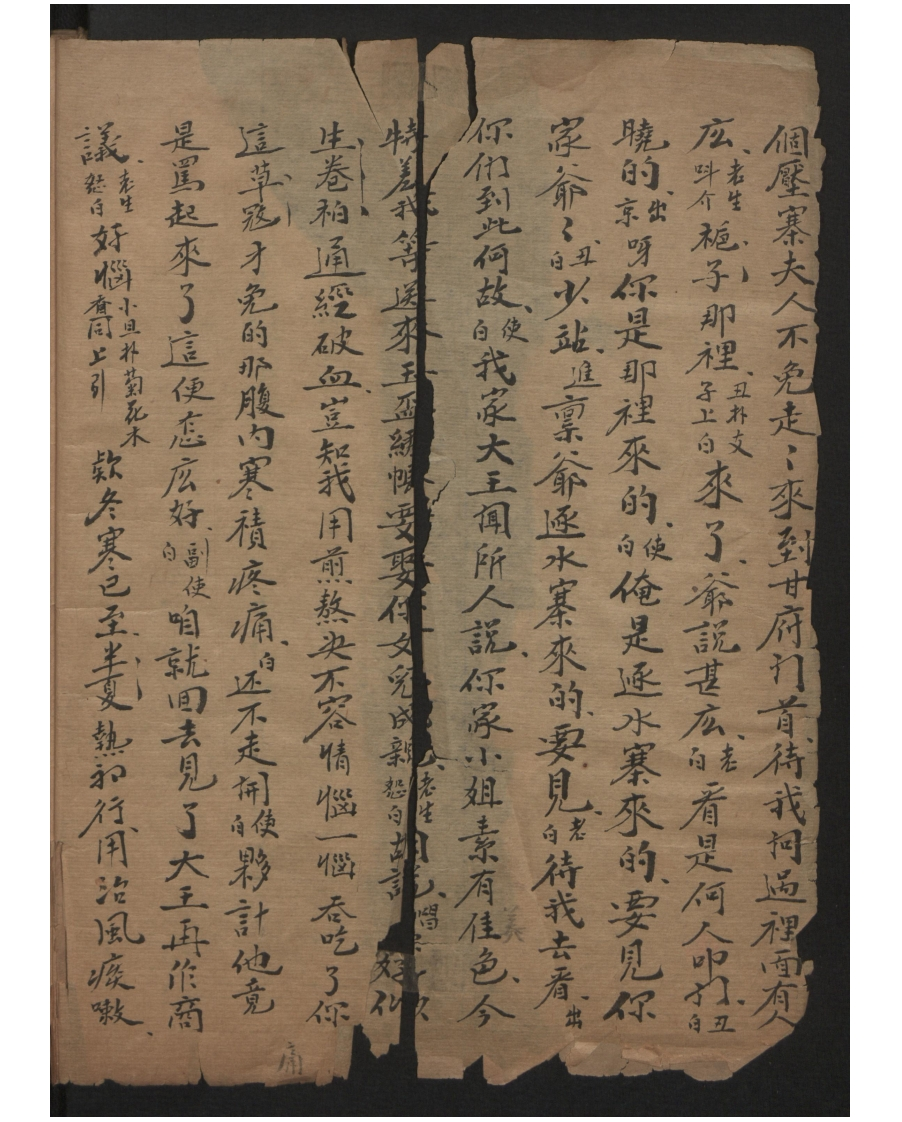 個壓寨夫人不免走〻來到甘府门首待我问过裡面有人
庅老生呌介栀子那裡丑扑支子上白來了爺說甚庅老白看是何人叩门丑白
曉的出京呀你是那裡來的使白俺是逐水寨來的要見你
家爺〻丑白少站進禀爺逐水寨來的要見老白待我去看出
你们到此何故使白我家大王闻所人說你家小姐素有佳色今
特差我等送來玉盃綉幔要娶你女兒成親老生怒白胡說唱好
生卷柏通經破血豈知我用煎熬决不容情惱一惱吞吃了你
這草寇才免的那腹内寒積疼痛白还不走開使白夥計他竟
是罵起來了這便怎庅好副使白咱就回去見了大王再作商
議老生怒白好惱小旦扑菊花木香同上引欵冬寒已至半夏熱初行用治風痰嗽
痛